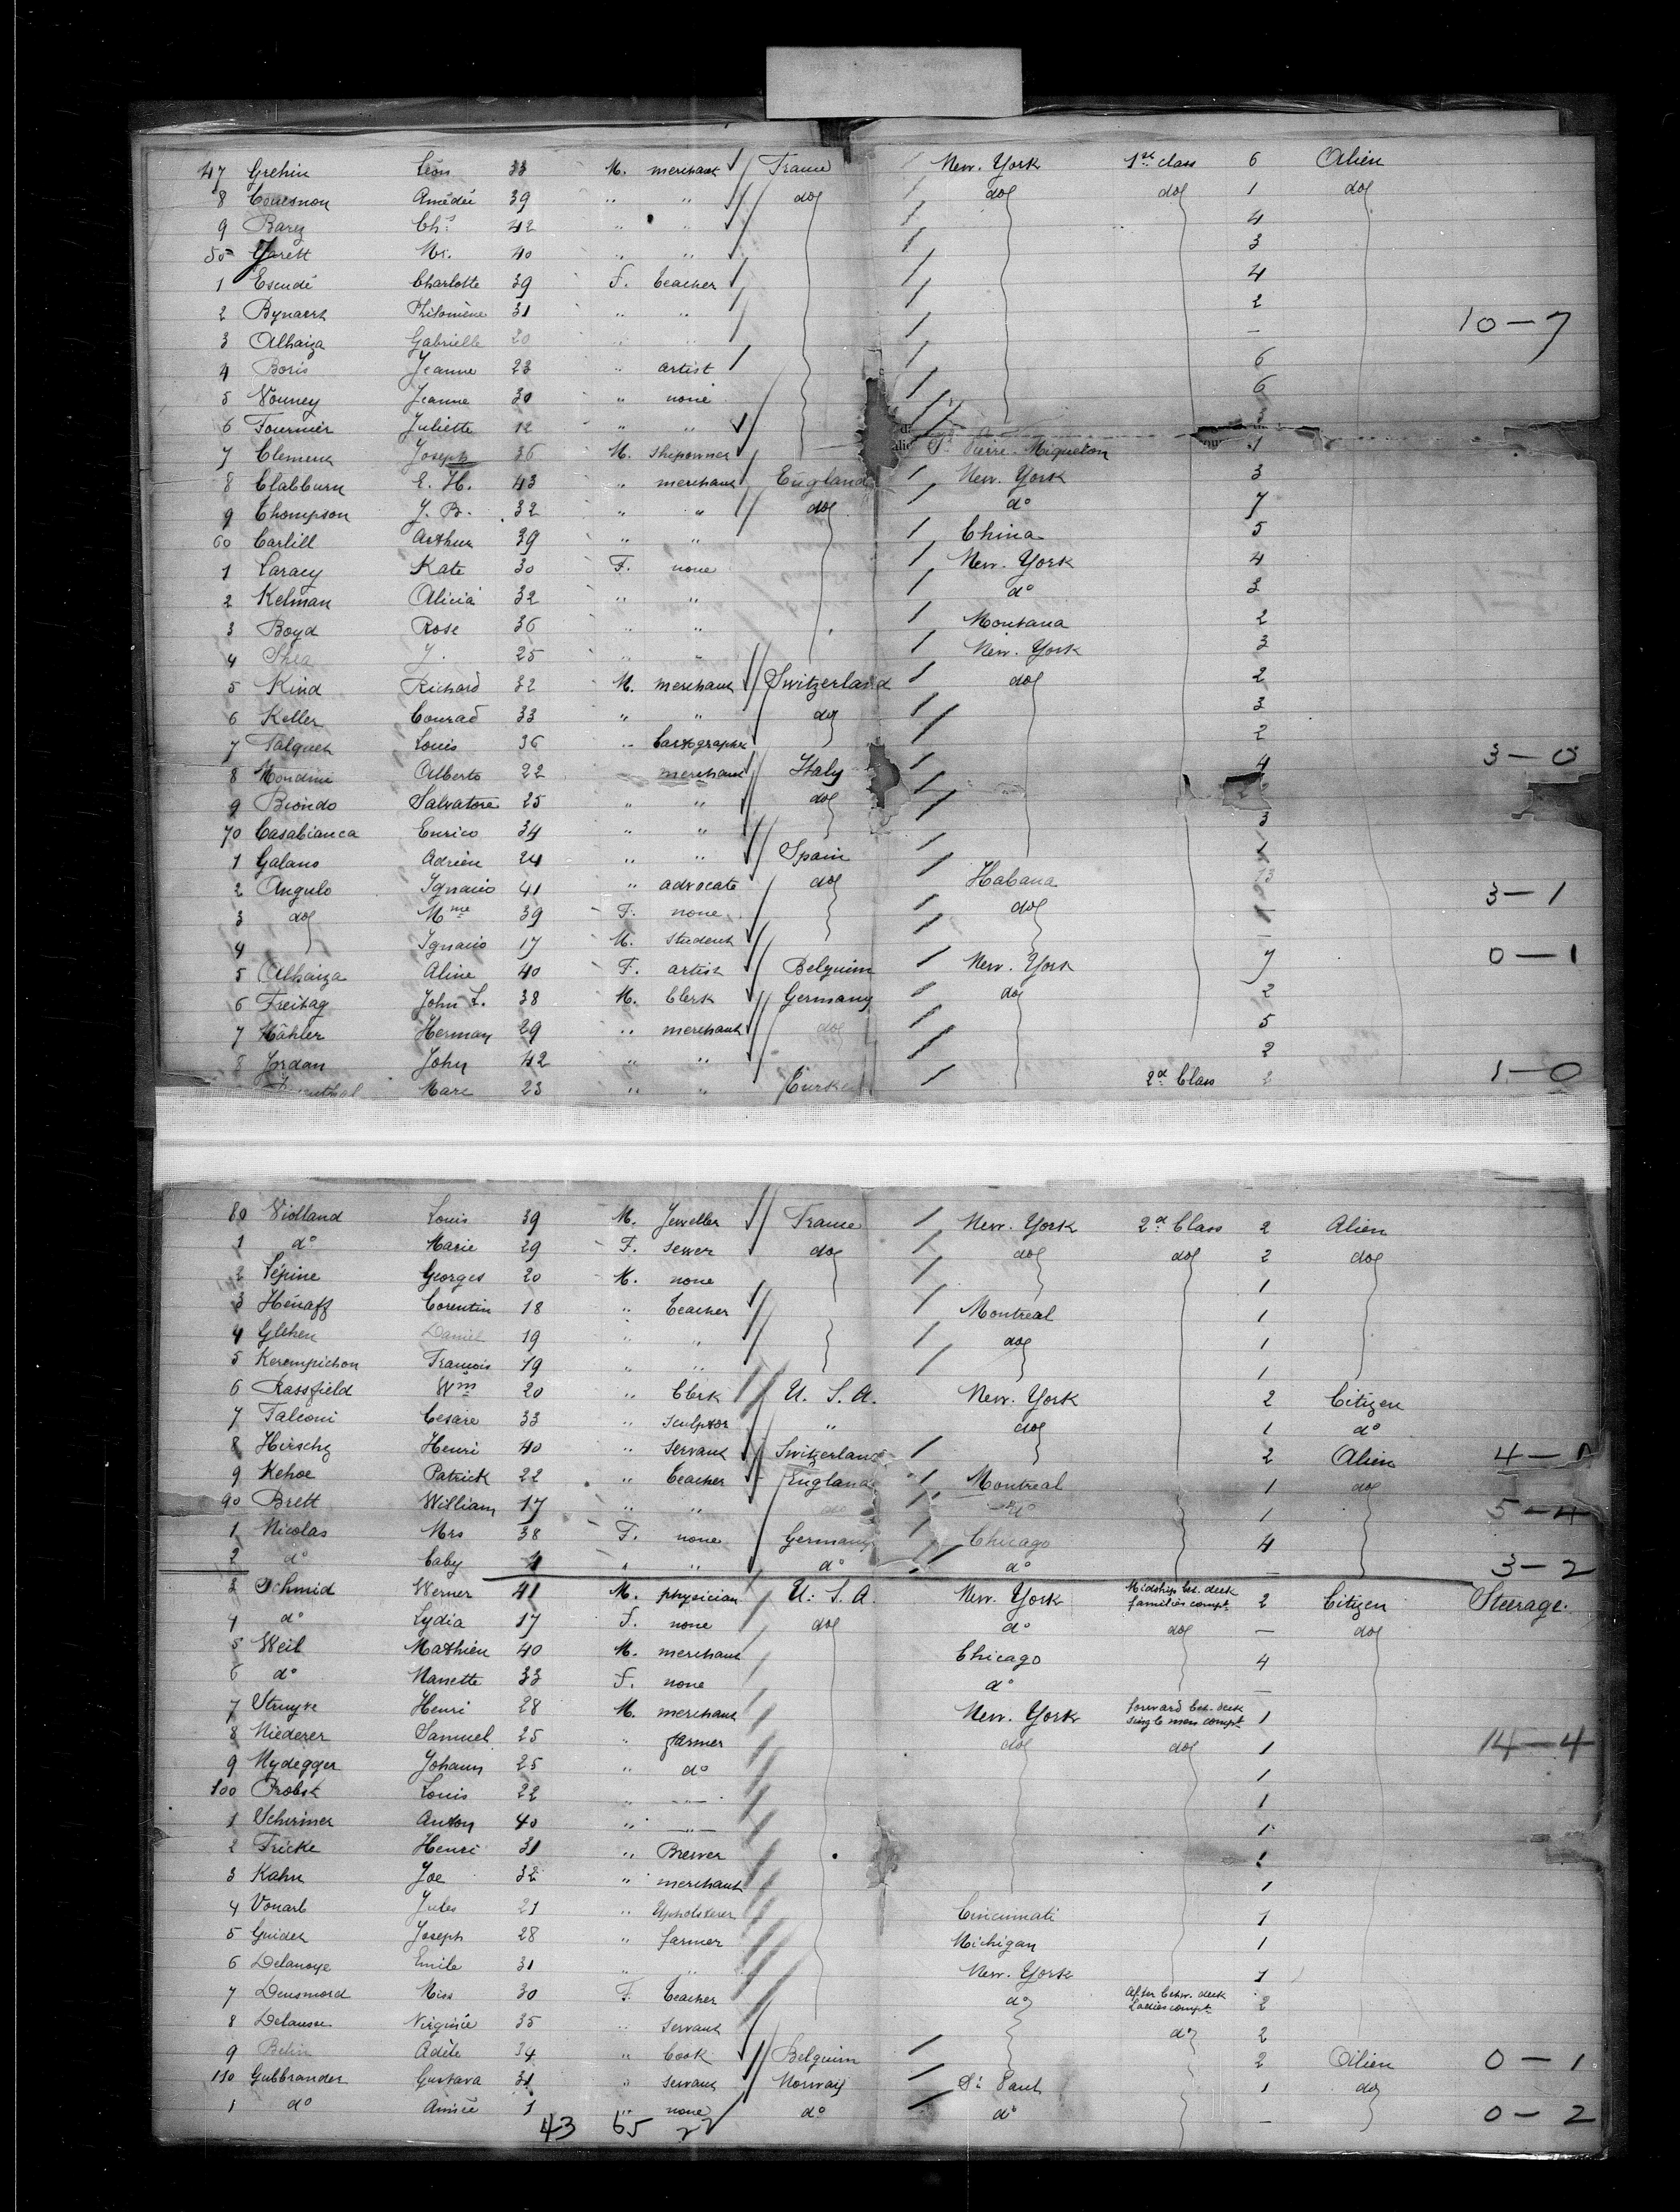 47 Grehin Léon 33 M. merchant France New. York 1st class 6 Alien
8 Couesnon Amédée 39 " " do do do 1 do
9 Barez Chs 42 " " 4
50 Yorett Mr. 40 " " 3
1 Escudé Charlotte 39 F. teacher 4
2 Bynaert Philomène 31 " " 2
3 Alhaiza Gabrielle 20 " " — 10—7
4 Boris Jeanne 23 " artist 6
5 Vouney Jeanne 30 " none 6
6 Fournier Juliette 12 " "
7 Clement Joseph 36 M. shipowner St. Pierre-Miquelon 1
8 Clabburn E. H. 43 " merchant England New. York 3
9 Thompson J. B. 32 " " do do 7
60 Carlill Arthur 39 " " China 5
1 Laracy Kate 30 F. none New. York 4
2 Kelman Alicia 32 " " do 3
3 Boyd Rose 36 " " Montana 2
4 Shea J. 25 " " New. York 3
5 Kind Richard 32 M. merchant Switzerland do 2
6 Keller Conrad 33 " " do 3
7 Talquet Louis 36 " 2
8 Mondini Alberto 22 merchant Italy 4 3—0
9 Biondo Salvatore 25 " " do
70 Casabianca Enrico 34 " " 3
1 Galano Adrien 24 " " Spain 1
2 Angulo Ignacio 41 " advocate do Habana 13 3—1
3 do Mme 39 F. none do —
4 Ignacio 17 M. student —
5 Alhaiza Aline 40 F. artist Belguim New. York 7 0—1
6 Freitag John L. 38 M. Clerk Germany do 2
7 Mähler Herman 29 " merchant do 5
8 Jordan John 42 " " 2
Marc 23 " " 2d Class 2 1—0
80 Violland Louis 39 M. Jeweller France New. York 2d Class 2 Alien
1 do Marie 29 F. sewer do do do 2 do
2 Lépine Georges 20 M. none 1
3 Hénaff Corentin 18 " teacher Montreal 1
4 Glehen Daniel 19 " " do 1
5 Kerempichon Francois 19 " " 1
6 Rassfield Wm 20 " Clerk U. S. A. New. York 2 Citizen
7 Falconi Cesare 33 " sculptor " do 1 do
8 Hirschy Henri 40 " servant Switzerland 2 Alien
9 Kehoe Patrick 22 " teacher England Montreal 1 do
90 Brett William 17 " " do do 1 5—4
1 Nicolas Mrs 38 F. none Germany Chicago 4
2 do baby " " do do — 3—2
3 Schmid Werner 41 M. physician U. S. A. New. York Midship bet. deck families compt. 2 Citizen Steerage.
4 do Lydia 17 F. none do do do — do
5 Weil Mathieu 40 M. merchant Chicago 4
6 do Nanette 33 F. none do —
7 Struyve Henri 28 M. merchant New. York forward bet. deck single men compt. 1
8 Niederer Samuel 25 " farmer do do 1 14—4
9 Nydegger Johann 25 " do 1
100 Probst Louis 22 " —"— 1
1 Schirmer Anton 40 " —"— 1
2 Fricke Henri 31 " Brewer 1
3 Kahn Joe 32 " merchant 1
4 Vonarb Jules 21 " Upholsterer Cincinnati 1
5 Guider Joseph 28 " farmer Michigan 1
6 Delanoye Emile 31 " " New. York 1
7 Densmord Miss 30 F. teacher do After betw. deck Ladies compt. 2
8 Delausse Virginie 35 " servant do 2
9 Belin Adèle 34 " Cook Belguim 2 Alien 0—1
110 Gubbrander Gustava 31 " servant Norway St. Paul 1 do
1 do Aimée 1 " none do do — 0—2
43 65 22